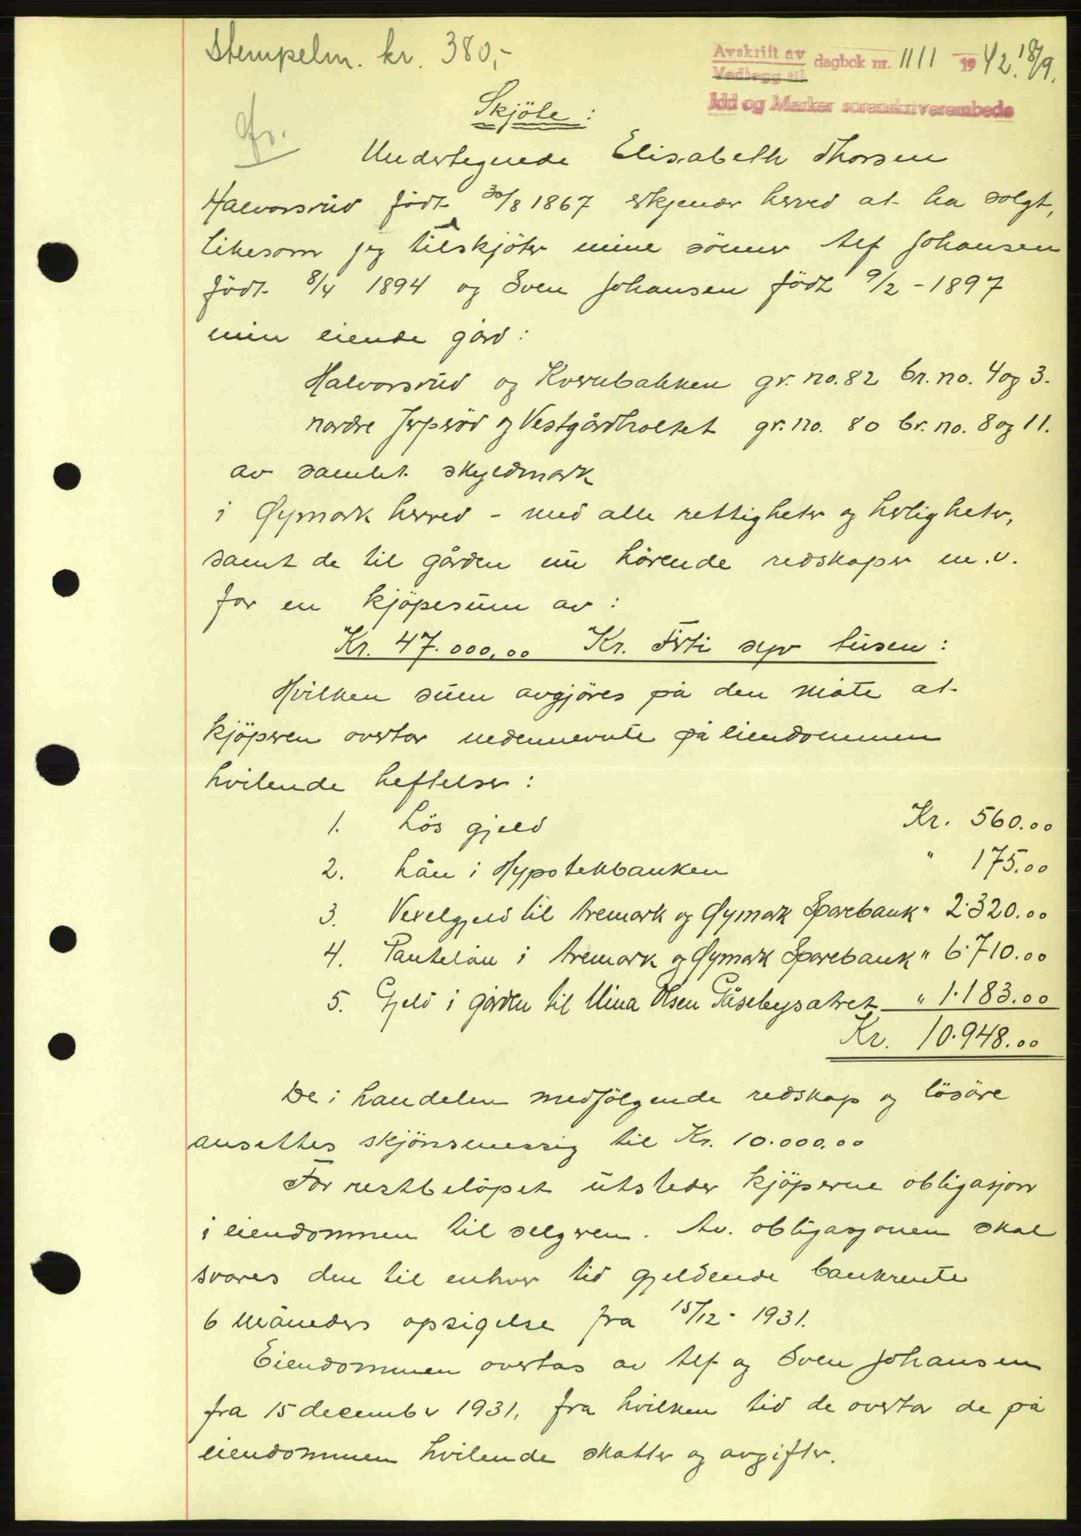 Stempelm. kr. 380,-
Avskrift av
Vedlegg til
dagbok nr. 1111 1942. 18/9.
Idd og Marker sorenskriverembede
Skjöte:
Undertegnede Elisabeth Thorsen
Halvorsrud født 30/8 1867 erkjenner herved at ha solgt,
likesom jeg tilskjöter mine sönner Alf Johansen
født 8/4 1894 og Sven Johansen født 9/2 - 1897
min eiende gård:
Halvorsrud og Kvernbakken gr. no. 82 br. no. 4 og 3.
nordre Jerpsröd og Vestgårdholtet gr. no. 80 br. no. 8 og 11.
av samlet skyldmark
i Øymark herred - med alle rettigheter og herligheter,
samt de til gården nu hörende redskaper m.v.
for en kjöpesum av:
Kr. 47.000,00 Kr. Förti syv tusen:
Hvilken sum avgjöres på den måte at
kjöperen overtar nedennevnte på eiendommen
hvilende heftelser:
1. Lös gjeld Kr. 560.00
2. Lån i Hypotekbanken " 175.00
3. Vexelgjeld til Aremark og Øymark Sparebank " 2.320.00
4. Pantelån i Aremark og Øymark Sparebank " 6.710.00
5. Gjeld i gården til Mina Olsen Gåsebysætret " 1.183.00
Kr. 10.948.00
De i handelen medfölgende redskap og lösöre
ansettes skjönsmessig til Kr. 10.000.00
For restbelöpet utsteder kjöperne obligasjon
i eiendommen til selgeren. Av obligasjonen skal
svares den til enhver tid gjeldende bankrente
6 måneders opsigelse fra 15/12 - 1931.
Eiendommen overtas av Alf og Sven Johansen
fra 15 december 1931, fra hvilken tid de overtar de på
eiendommen hvilende skatter og avgifter.